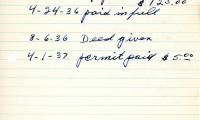 $125.00
4-24-36 paid in full
8-6-36 Deed given
4-1-37 permit paid $5.00